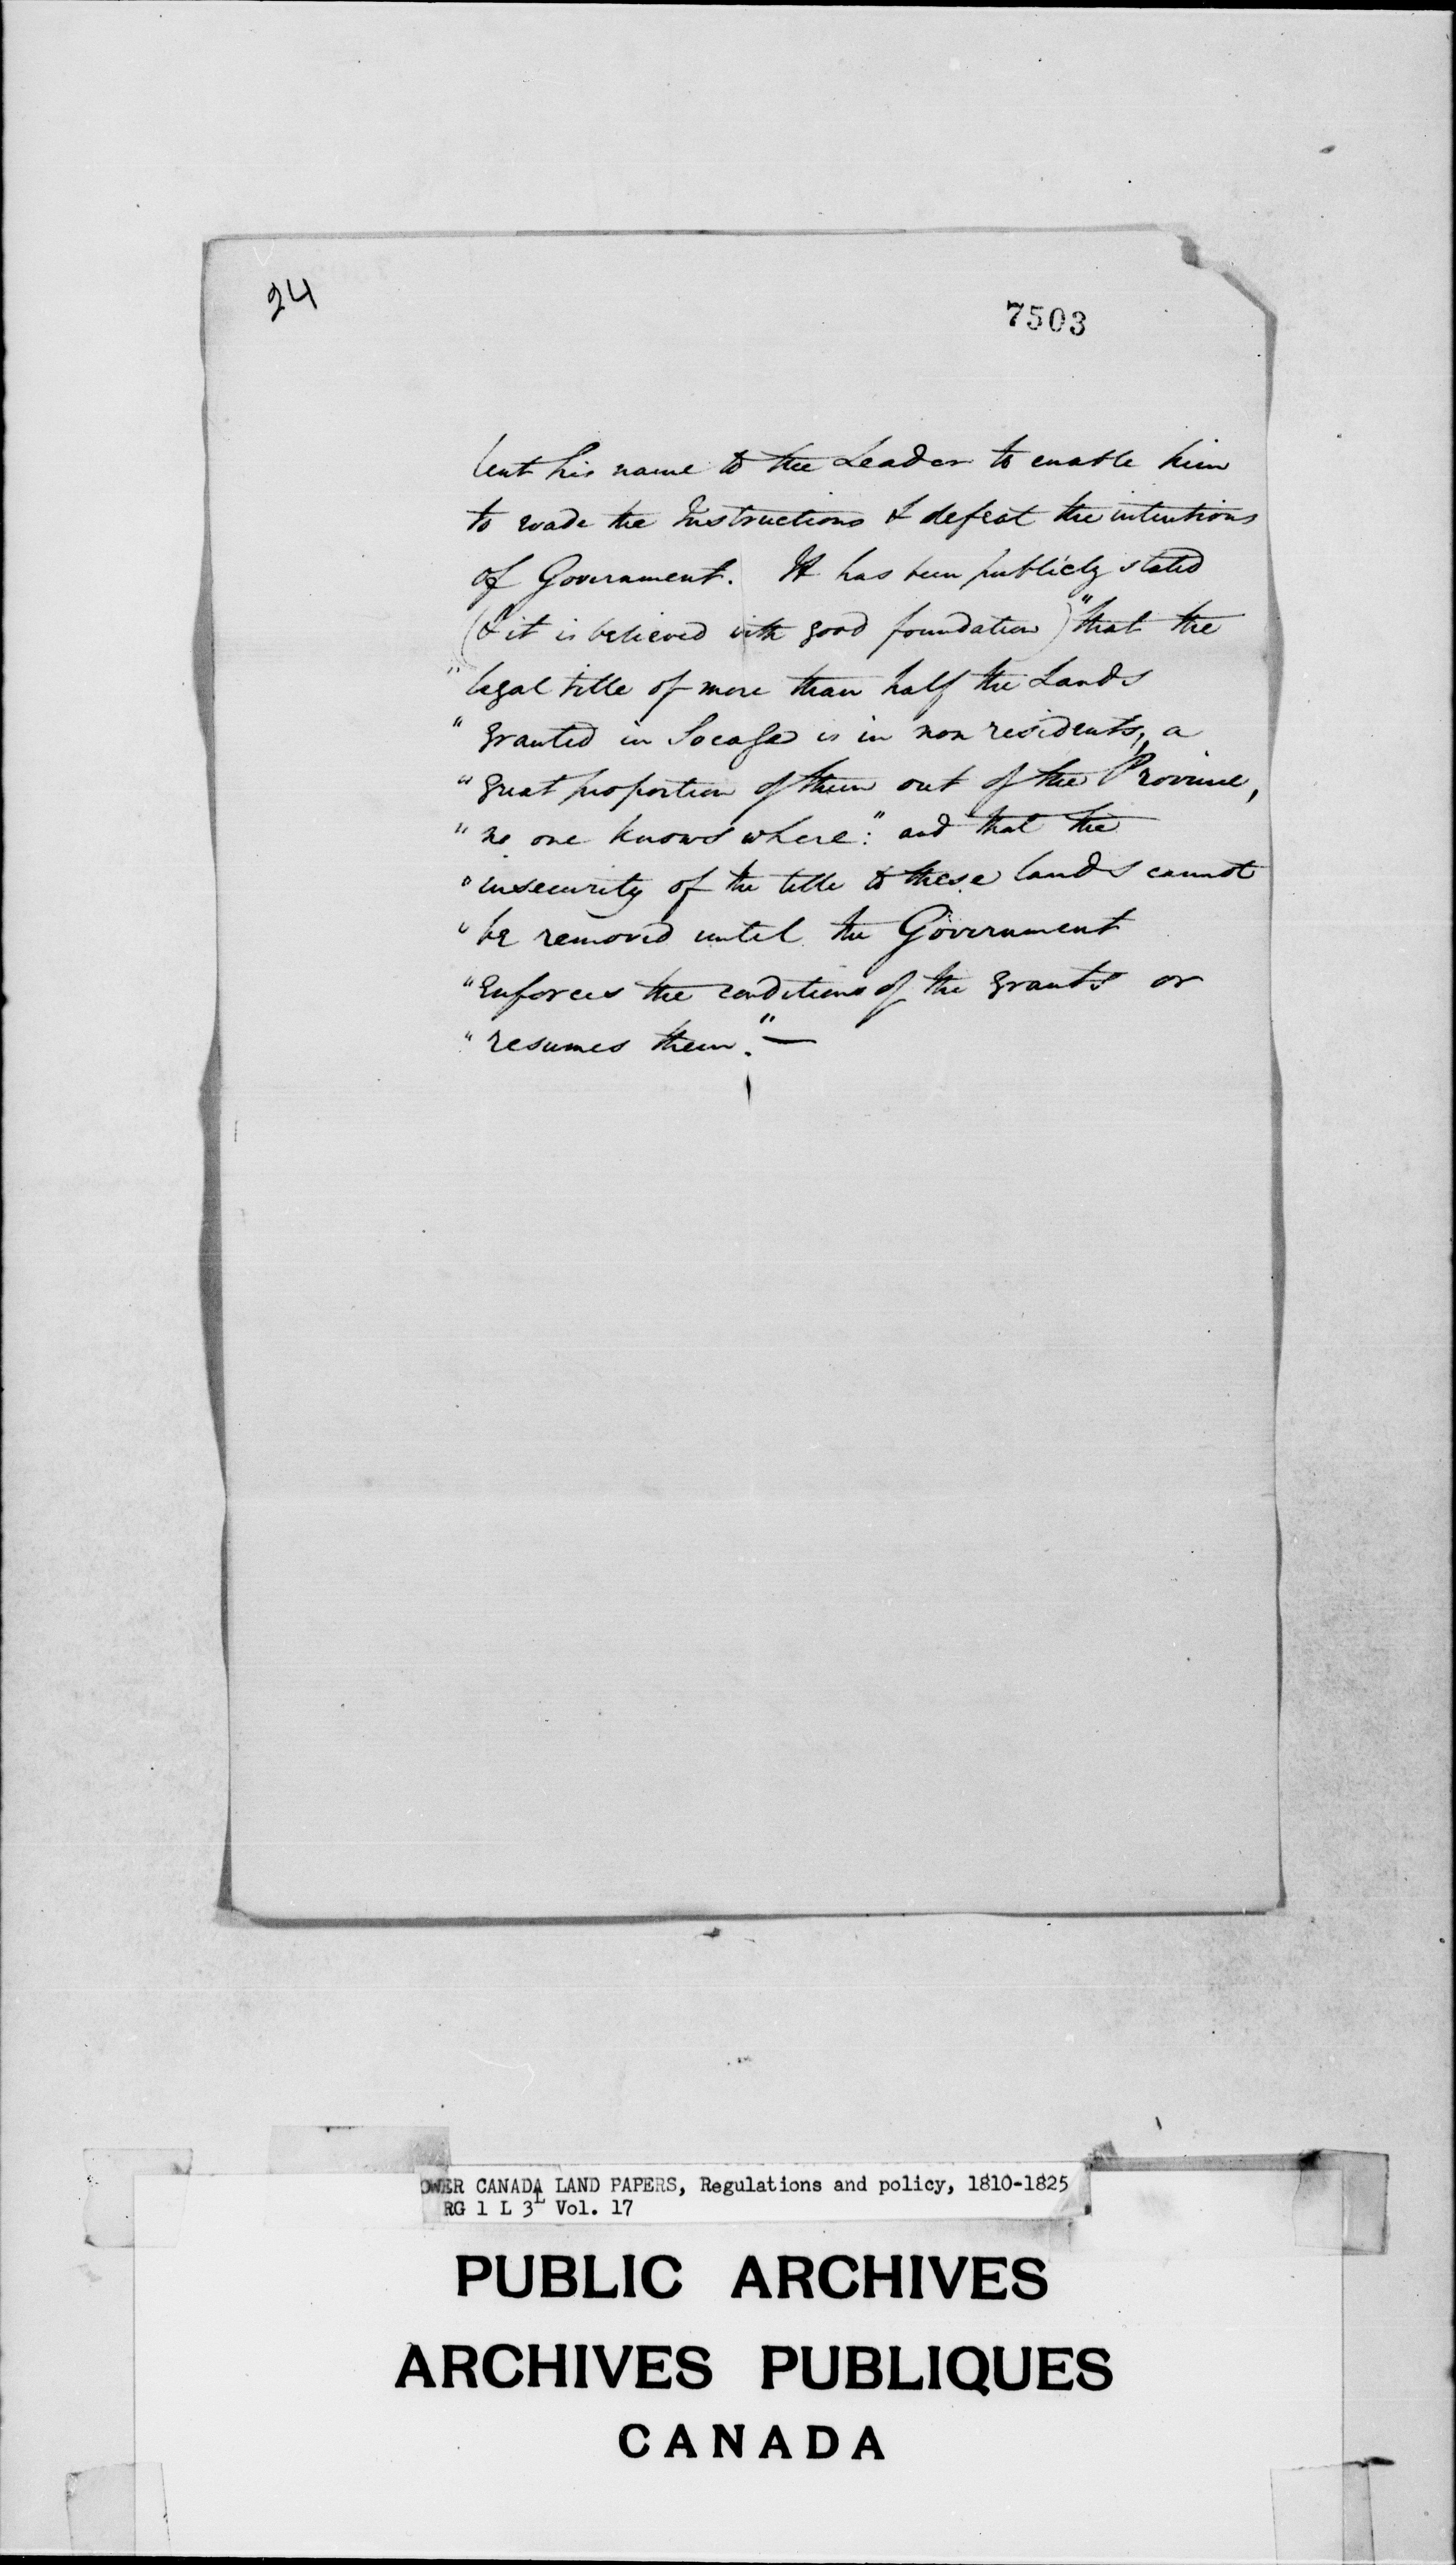 24
7503
lent his name to the Leader to enable him
to evade the Instructions & defeat the intentions
of Government. It has been publicly stated
(& it is believed with good foundation) "that the
" legal title of more than half the Lands
" granted in Socage is in non residents, a
" great proportion of them out of the Province,
" no one knows where:" and that the
" insecurity of the title to these lands cannot
" be removed until the Government
" enforces the conditions of the grants or
" resumes them."—
OWER CANADA LAND PAPERS, Regulations and policy, 1810-1825
RG 1 L 3L Vol. 17
PUBLIC ARCHIVES
ARCHIVES PUBLIQUES
CANADA